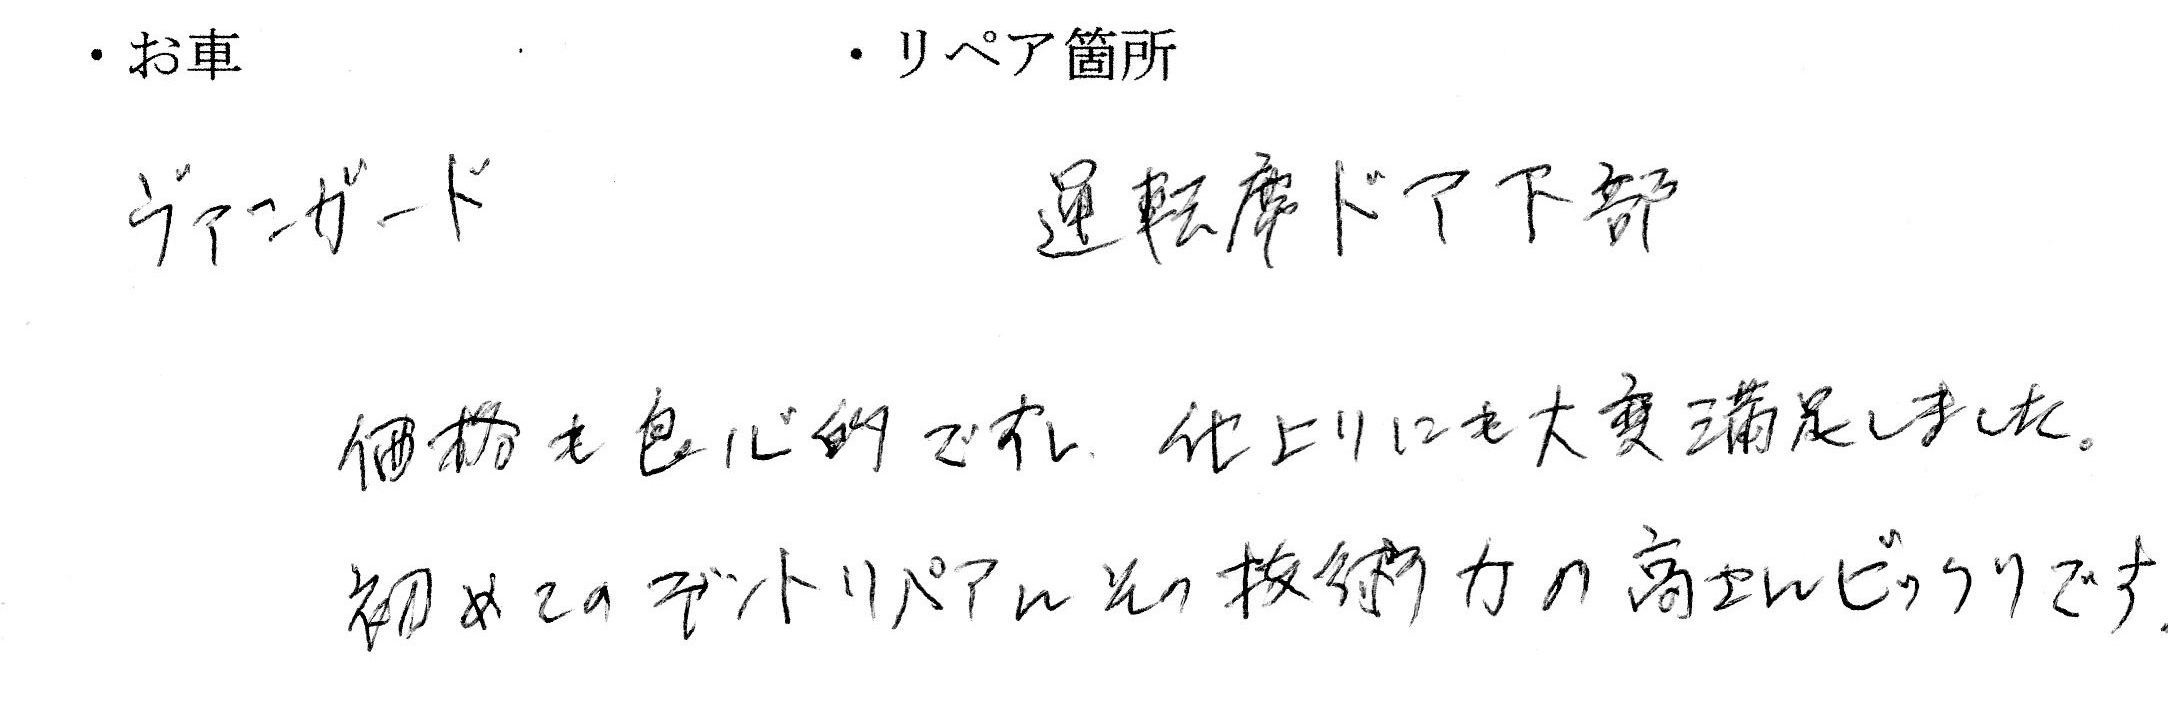 ・お車 ・リペア箇所
ヴァンガード 運転席ドア下部
価格も良心的ですし、仕上りにも大変満足しました。
初めてのデントリペアにその技術力の高さにビックリです。